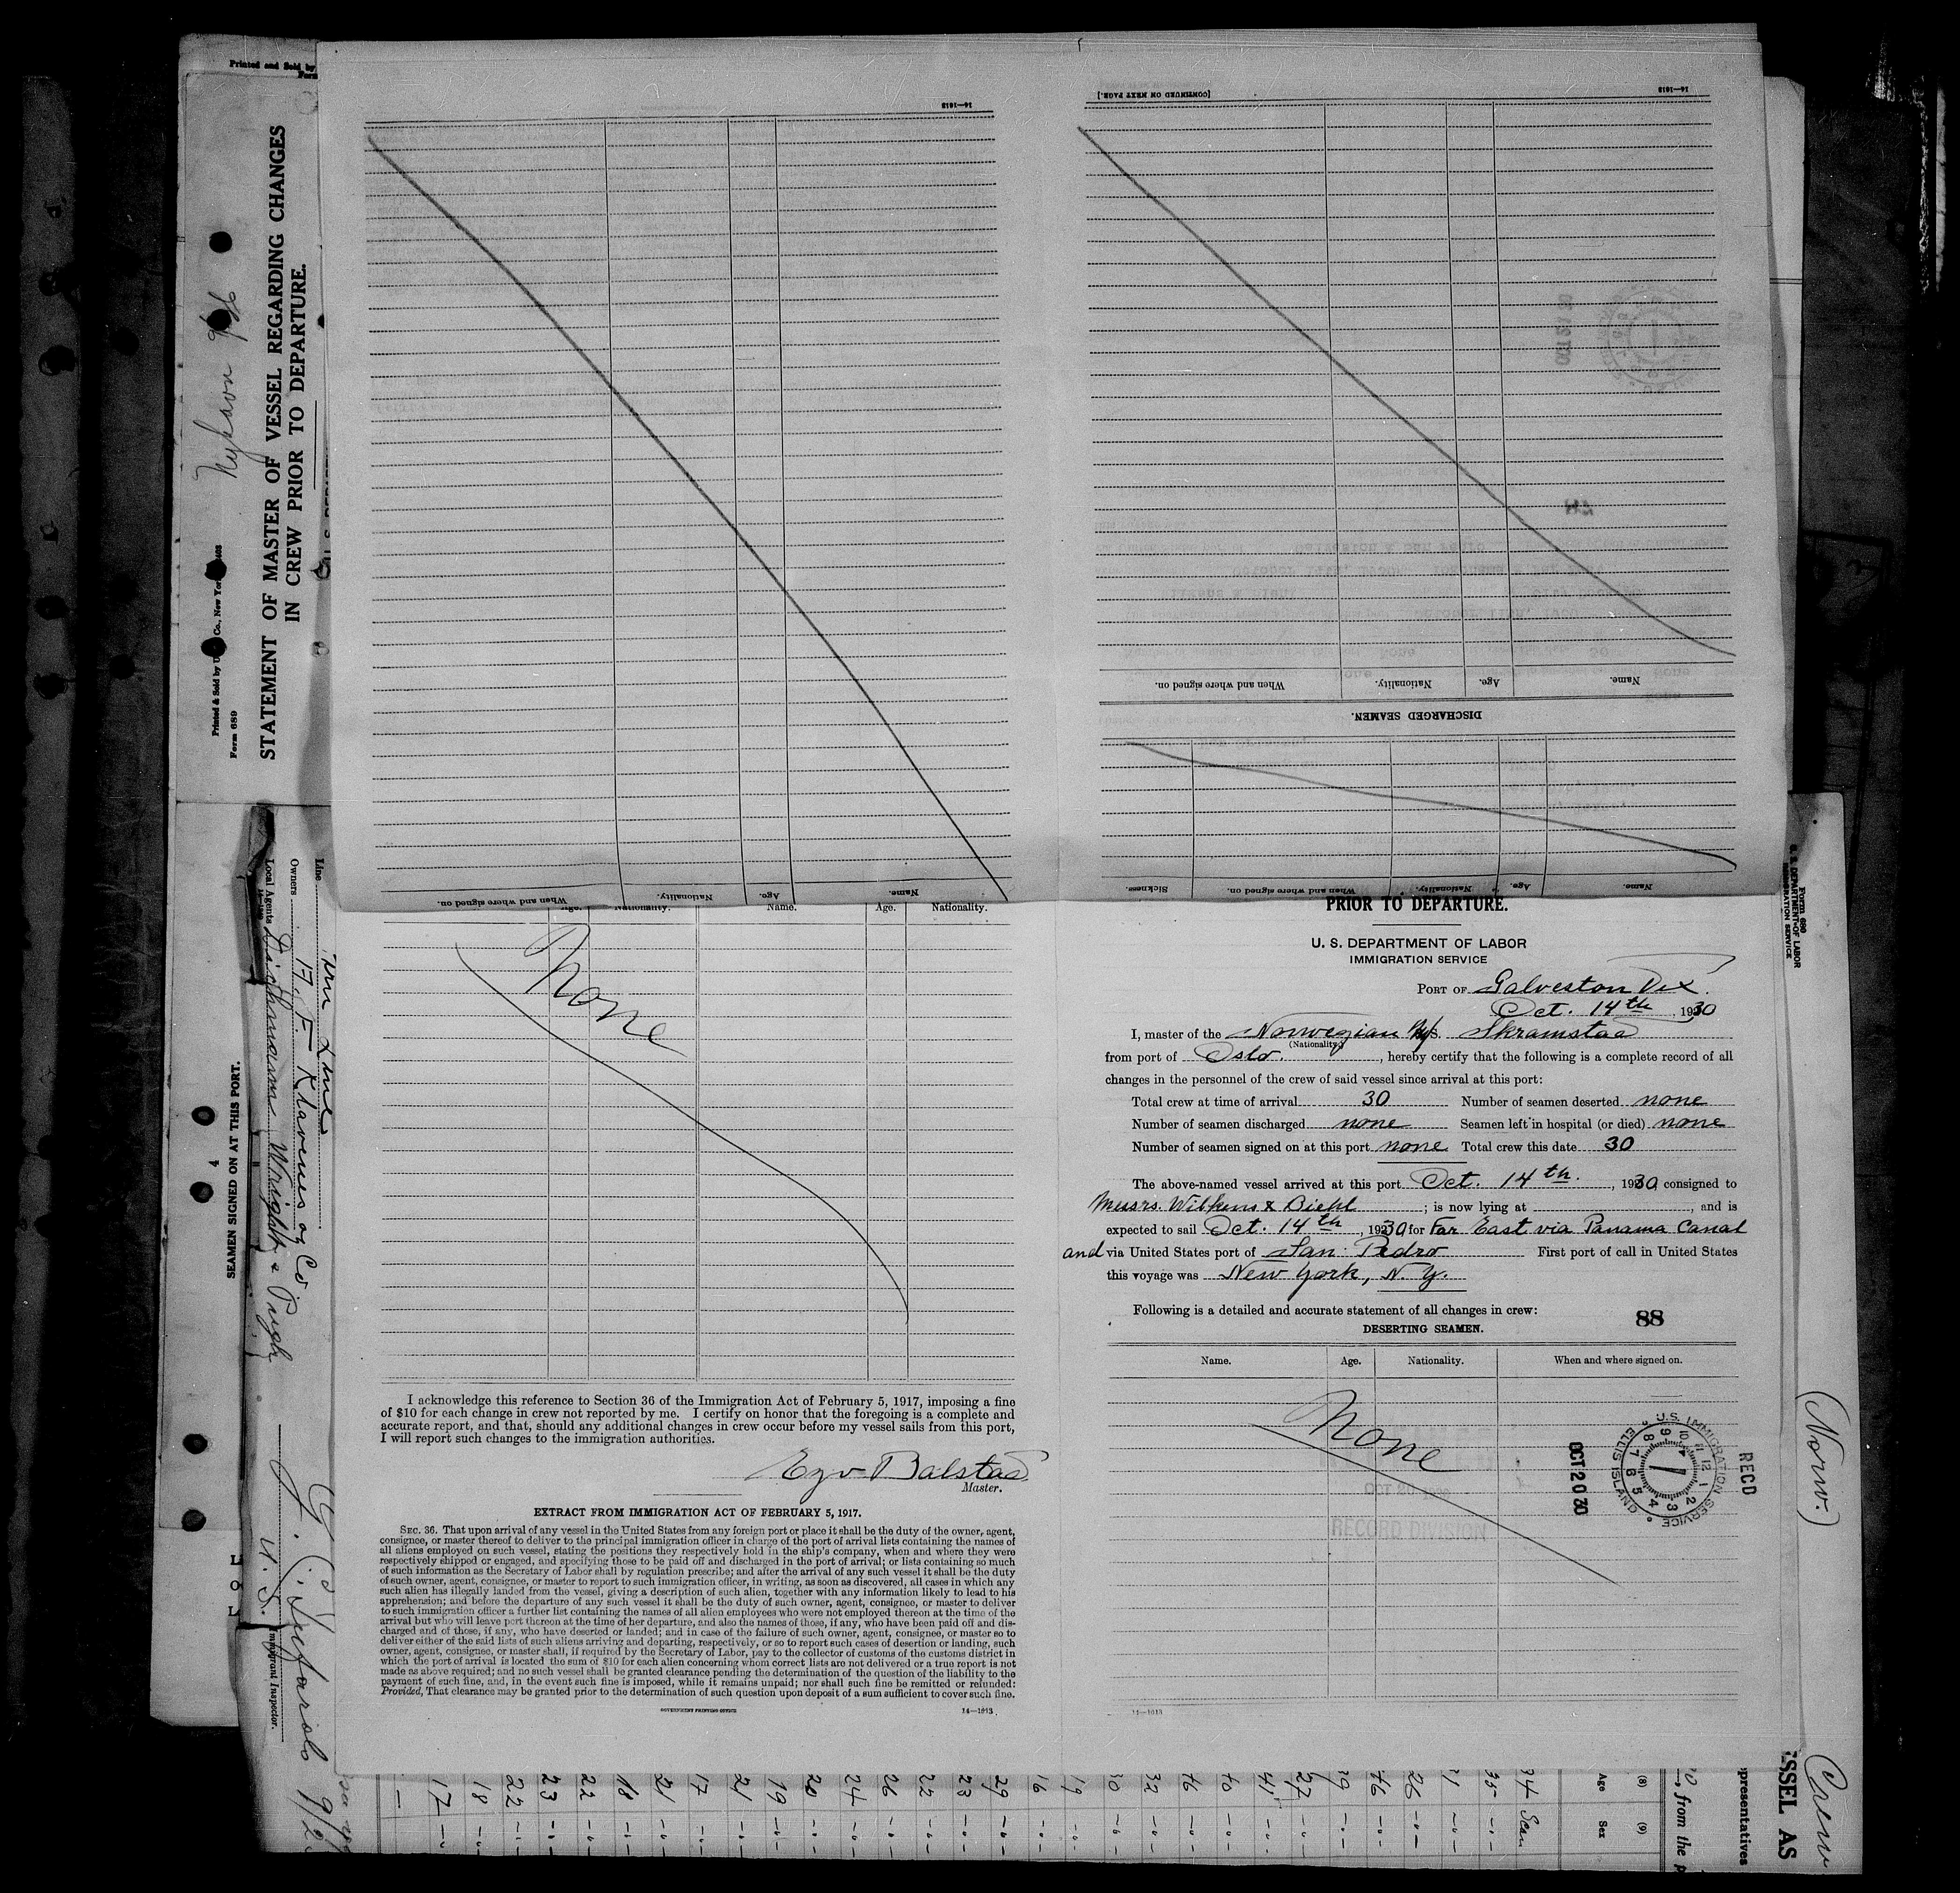 Printed and Sold by
Form
Nyhavn
Printed & Sold by
Co., New York
Form 689
STATEMENT OF MASTER OF VESSEL REGARDING CHANGES
IN CREW PRIOR TO DEPARTURE.
14—1613
When and where signed on.
Nationality.
Age.
Name.
[CONTINUED ON NEXT PAGE.]
14—1613
DISCHARGED SEAMEN.
Name.
Age.
Nationality.
When and where signed on.
Name.
Age.
Nationality.
When and where signed on.
Sickness.
Line
Owners A. F. Klaveness og Co
Local Agents Dichmann Wright & Pugh
SEAMEN SIGNED ON AT THIS PORT.
4
U. S.
Immigrant Inspector.
Age. Nationality. Name. Age. Nationality.
None
I acknowledge this reference to Section 36 of the Immigration Act of February 5, 1917, imposing a fine
of $10 for each change in crew not reported by me. I certify on honor that the foregoing is a complete and
accurate report, and that, should any additional changes in crew occur before my vessel sails from this port,
I will report such changes to the immigration authorities.
Balstad
Master.
EXTRACT FROM IMMIGRATION ACT OF FEBRUARY 5, 1917.
SEC. 36. That upon arrival of any vessel in the United States from any foreign port or place it shall be the duty of the owner, agent,
consignee, or master thereof to deliver to the principal immigration officer in charge of the port of arrival lists containing the names of
all aliens employed on such vessel, stating the positions they respectively hold in the ship's company, when and where they were
respectively shipped or engaged, and specifying those to be paid off and discharged in the port of arrival; or lists containing so much
of such information as the Secretary of Labor shall by regulation prescribe; and after the arrival of any such vessel it shall be the duty
of such owner, agent, consignee, or master to report to such immigration officer, in writing, as soon as discovered, all cases in which any
such alien has illegally landed from the vessel, giving a description of such alien, together with any information likely to lead to his
apprehension; and before the departure of any such vessel it shall be the duty of such owner, agent, consignee, or master to deliver
to such immigration officer a further list containing the names of all alien employees who were not employed thereon at the time of the
arrival but who will leave port thereon at the time of her departure, and also the names of those, if any, who have been paid off and dis-
charged and of those, if any, who have deserted or landed; and in case of the failure of such owner, agent, consignee, or master so to
deliver either of the said lists of such aliens arriving and departing, respectively, or so to report such cases of desertion or landing, such
owner, agent, consignee, or master shall, if required by the Secretary of Labor, pay to the collector of customs of the customs district in
which the port of arrival is located the sum of $10 for each alien concerning whom correct lists are not delivered or a true report is not
made as above required; and no such vessel shall be granted clearance pending the determination of the question of the liability to the
payment of such fine, and, in the event such fine is imposed, while it remains unpaid; nor shall such fine be remitted or refunded:
Provided, That clearance may be granted prior to the determination of such question upon deposit of a sum sufficient to cover such fine.
GOVERNMENT PRINTING OFFICE
14—1613
PRIOR TO DEPARTURE.
U. S. DEPARTMENT OF LABOR
IMMIGRATION SERVICE
PORT OF Galveston Tex.
Oct. 14th, 1930
I, master of the Norwegian M/S. Skramstad
(Nationality)
from port of Oslo, hereby certify that the following is a complete record of all
changes in the personnel of the crew of said vessel since arrival at this port:
Total crew at time of arrival 30 Number of seamen deserted none
Number of seamen discharged none Seamen left in hospital (or died) none
Number of seamen signed on at this port none Total crew this date 30
The above-named vessel arrived at this port Oct. 14th., 1930, consigned to
Messrs. Wilkens & Biehl; is now lying at , and is
expected to sail Oct. 14th, 1930 for Far East via Panama Canal
and via United States port of San Pedro First port of call in United States
this voyage was New York, N.Y.
Following is a detailed and accurate statement of all changes in crew:
88
DESERTING SEAMEN.
Name. Age. Nationality. When and where signed on.
None
RECORD DIVISION
OCT 20 30
U.S. IMMIGRATION SERVICE
ELLIS ISLAND
RECD
14—1613
Form 689
U. S. DEPARTMENT OF LABOR
IMMIGRATION SERVICE
(Norw.)
Crew
SSEL AS
presentatives
from the p
(8)
Age
(9)
Sex